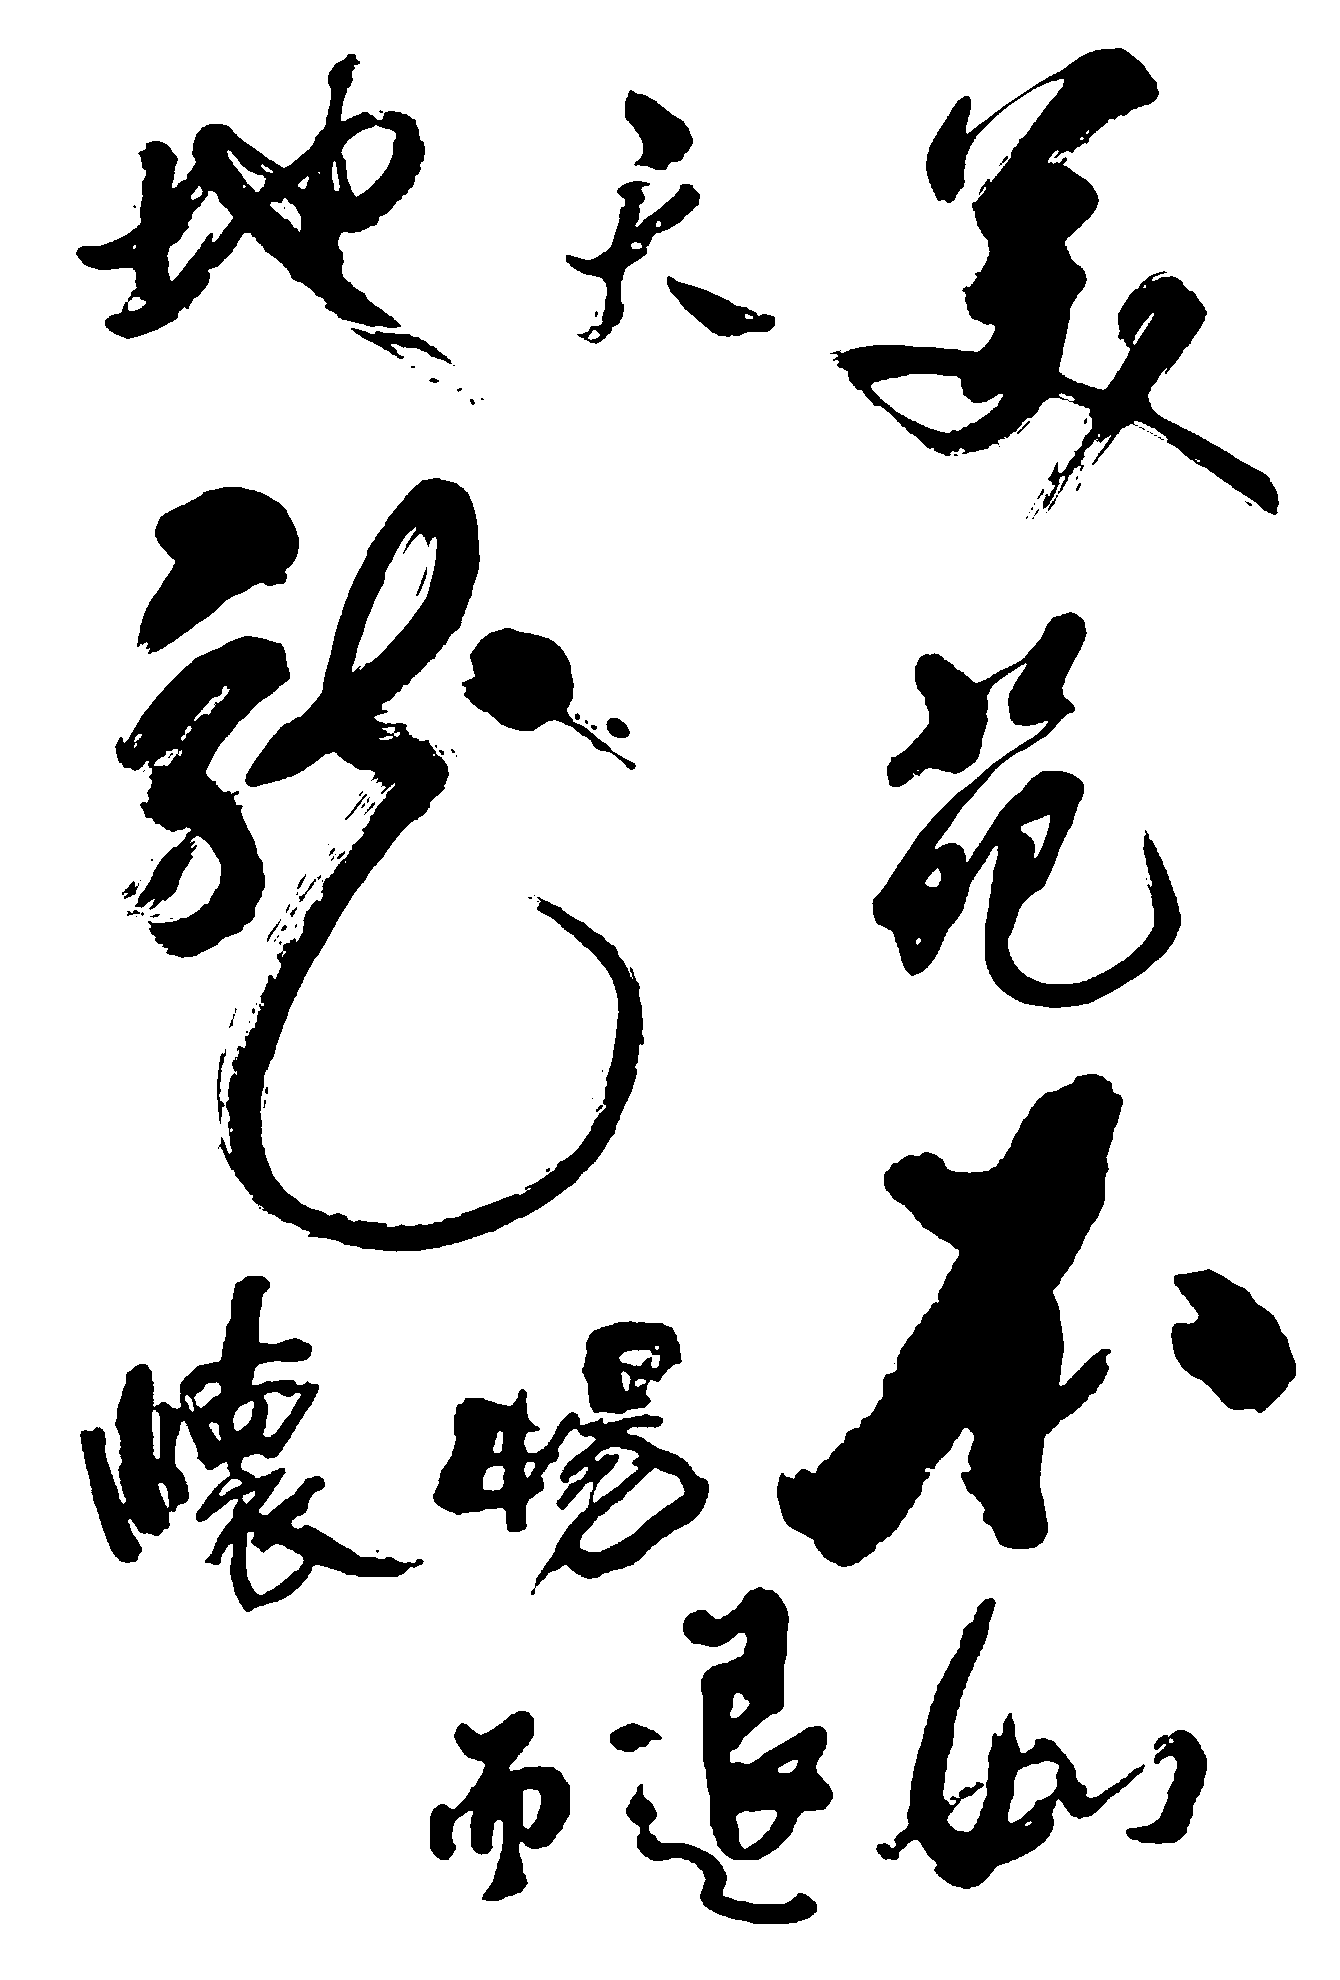 地天美
龍苑
懷暢不
而退如